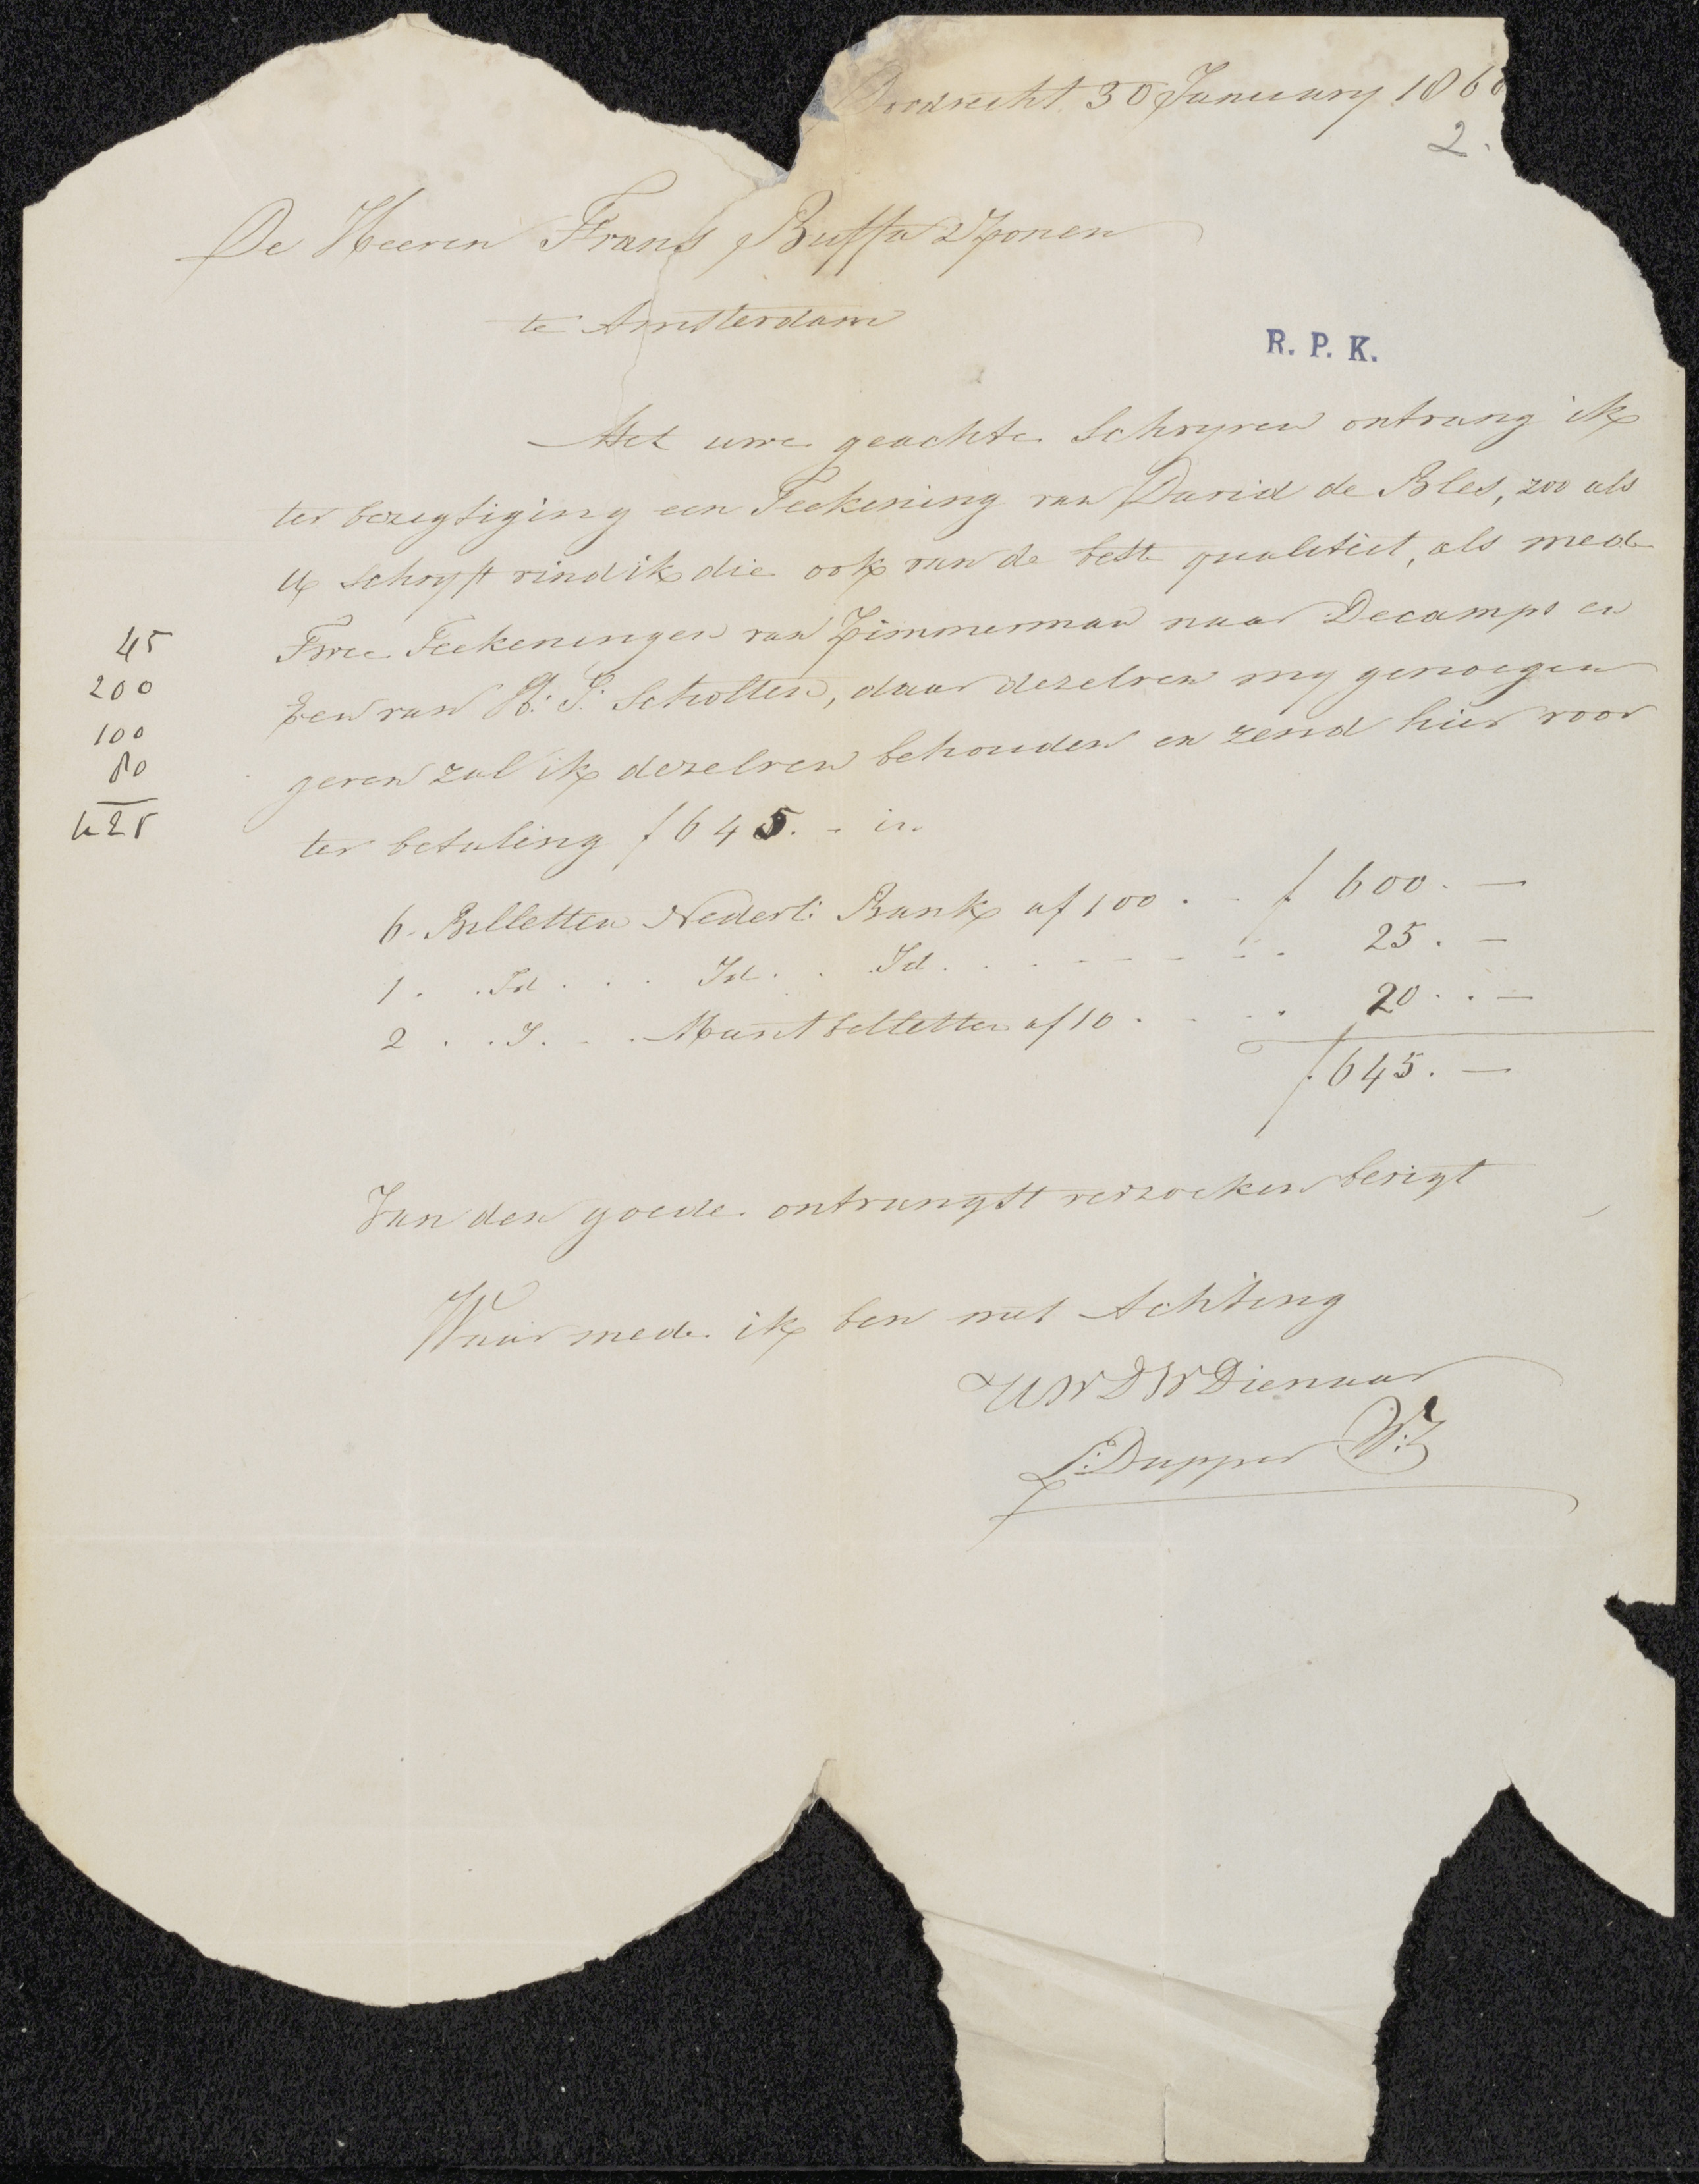 Dordrecht 30 January 1860
2.
De Heeren Frans Buffa & Zonen
te Amsterdam
R. P. K.
Met uwe geachte schryven ontvang ik
ter bezigtiging een Teekening van David de Bles, zoo als
U schryft vind ik die ook van de beste qualitiet, als mede
Twee Teekeningen van Zimmerman naar Decamps en
Een van H: J: Scholten, daar dezelven my genoegen
geven zal ik dezelven behouden en zend hier voor
ter betaling f 645. - in
45
200
100
80
425
6. Billetten Nederl: Bank af 100 . . f 600. —
1 . . Id . . . Id . . Id . . . . . . . . 25. —
2 . . I. . . Muntbilletten af 10 . . . . 20. . —
f 645. —
Van den goede ontvangst verzoeken berigt
Waar mede ik ben met Achting
UWDWDienaar
L: Dupper W:Z